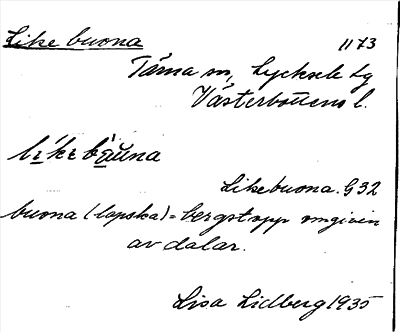 Like buona 1173
Tärna sn, Lycksele lg
Västerbottens l.
Likebuona. G32
buona (lapska) = bergstopp omgiven
av dalar.
Lisa Lidberg 1935